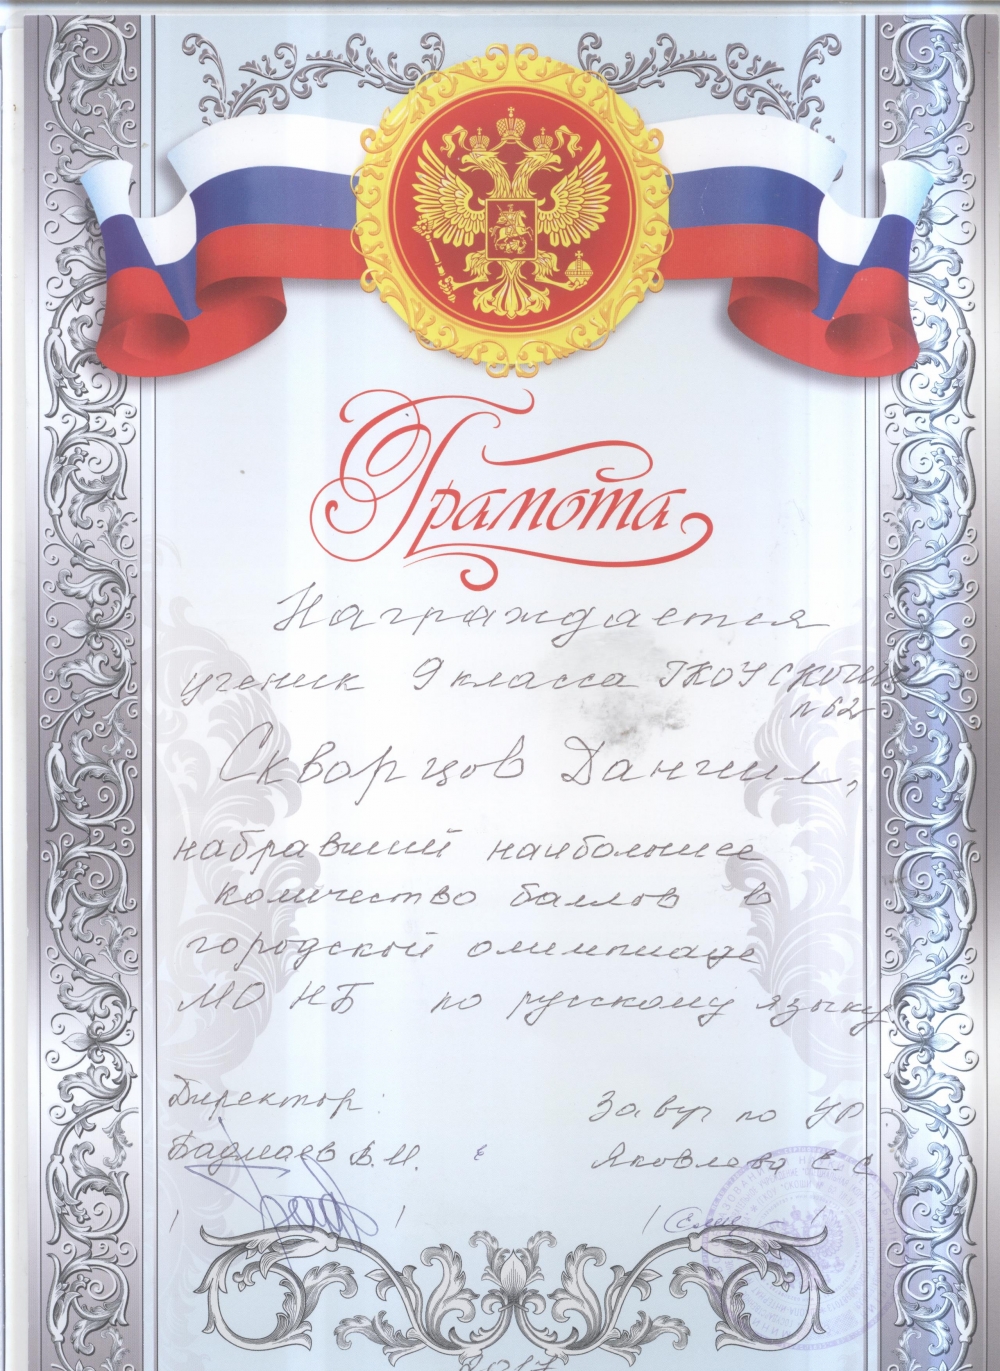 Грамота
Награждается
ученик 9 класса ГКОУ СКОШИ
№ 62
Скворцов Даниил,
набравший наибольшее
количество баллов в
городской олимпиаде
МО НБ по русскому языку.
Директор: Завуч по УР
Бадмаев В.И. Яковлева Е.С
2017